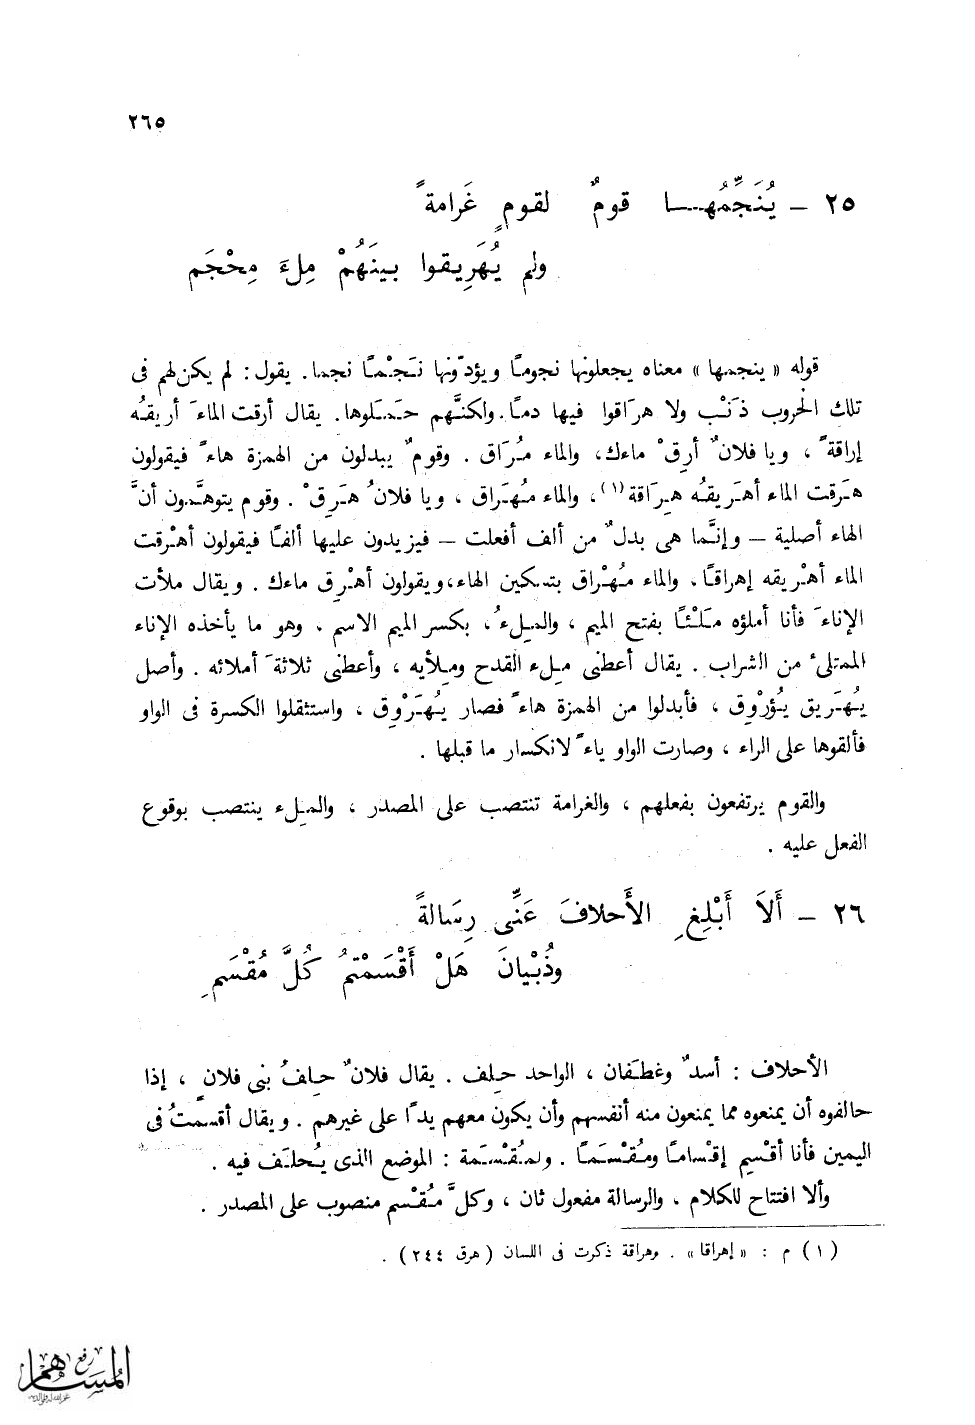 ٢٦٥
٢٥ ـ يُنَجِّمُهـا قومٌ لقومٍ غَرامةً
ولم يُهَرِيقوا بينَهُمْ مِلءَ مِحْجَم
قوله «ينجمها» معناه يجعلونها نجومًا ويؤدّونها نَجْمًا نجما. يقول: لم يكن لهم فى
تلك الحروب ذَنْب ولا هرَاقوا فيها دمًا. ولكنَّهم حَمَلوها. يقال أرقت الماءَ أريقُه
إراقةً ، ويا فلانٌ أرِقْ ماءك، والماء مُرَاق . وقومٌ يبدلون من الهمزة هاءً فيقولون
هَرَقت الماء أهَرِيقُه هِرَاقة(١)، والماء مُهَراق ، ويا فلانُ هَرِقْ . وقوم يتوهَّمون أنَّ
الهاء أصلية – وإنَّما هى بدلٌ من ألف أفعلت – فيزيدون عليها ألفًا فيقولون أهْرقت
الماء أهْرِيقه إهراقًا. والماء مُهْراق بتسكين الهاء، ويقولون أهْرِق ماءك . ويقال ملأت
الإناءَ فأنا أملؤه مَلْئًا بفتح الميم ، والمِلءُ، بكسر الميم الاسم . وهو ما يأخذه الإناء
الممتلئ من الشراب . يقال أعطنى مِلء القدح ومِلأيه ، وأعطنى ثلاثةَ أملائه . وأصل
يُهَرِيق يُؤرْوِق ، فأبدلوا من الهمزة هاءً فصار يُهَرْوِق ، واستثقلوا الكسرة فى الواو
فألقوها على الراء ، وصارت الواو ياءً لانكسار ما قبلها .
والقوم يرتفعون بفعلهم ، والغرامة تنتصب على المصدر ، والمِلء ينتصب بوقوع
الفعل عليه .
٢٦ ـ أَلاَ أَبْلِغِ الأَحلافَ عَنِّى رِسَالةً
وذُبْيانَ هَلْ أَقْسَمْتمُ كُلَّ مُقْسَمِ
الأحلاف : أسدٌ وغطَفان ، الواحد حِلف . يقال فلانٌ حِلفُ بنى فلانٍ ، إذا
حالفوه أن يمنعوه مما يمنعون منه أنفسهم وأن يكون معهم يدًا على غيرهم . ويقال أقسمتُ فى
اليمين فأنا أقْسِم إقْسامًا ومُقْسَمًا . والمُقْسَمة : الموضع الذى يُحلَف فيه .
وألا افتتاح للكلام ، والرسالة مفعول ثان ، وكلَّ مُقْسم منصوب على المصدر .
(١) م : «إهراقا» . وهراقة ذكرت فى اللسان (هرق ٢٤٤) .